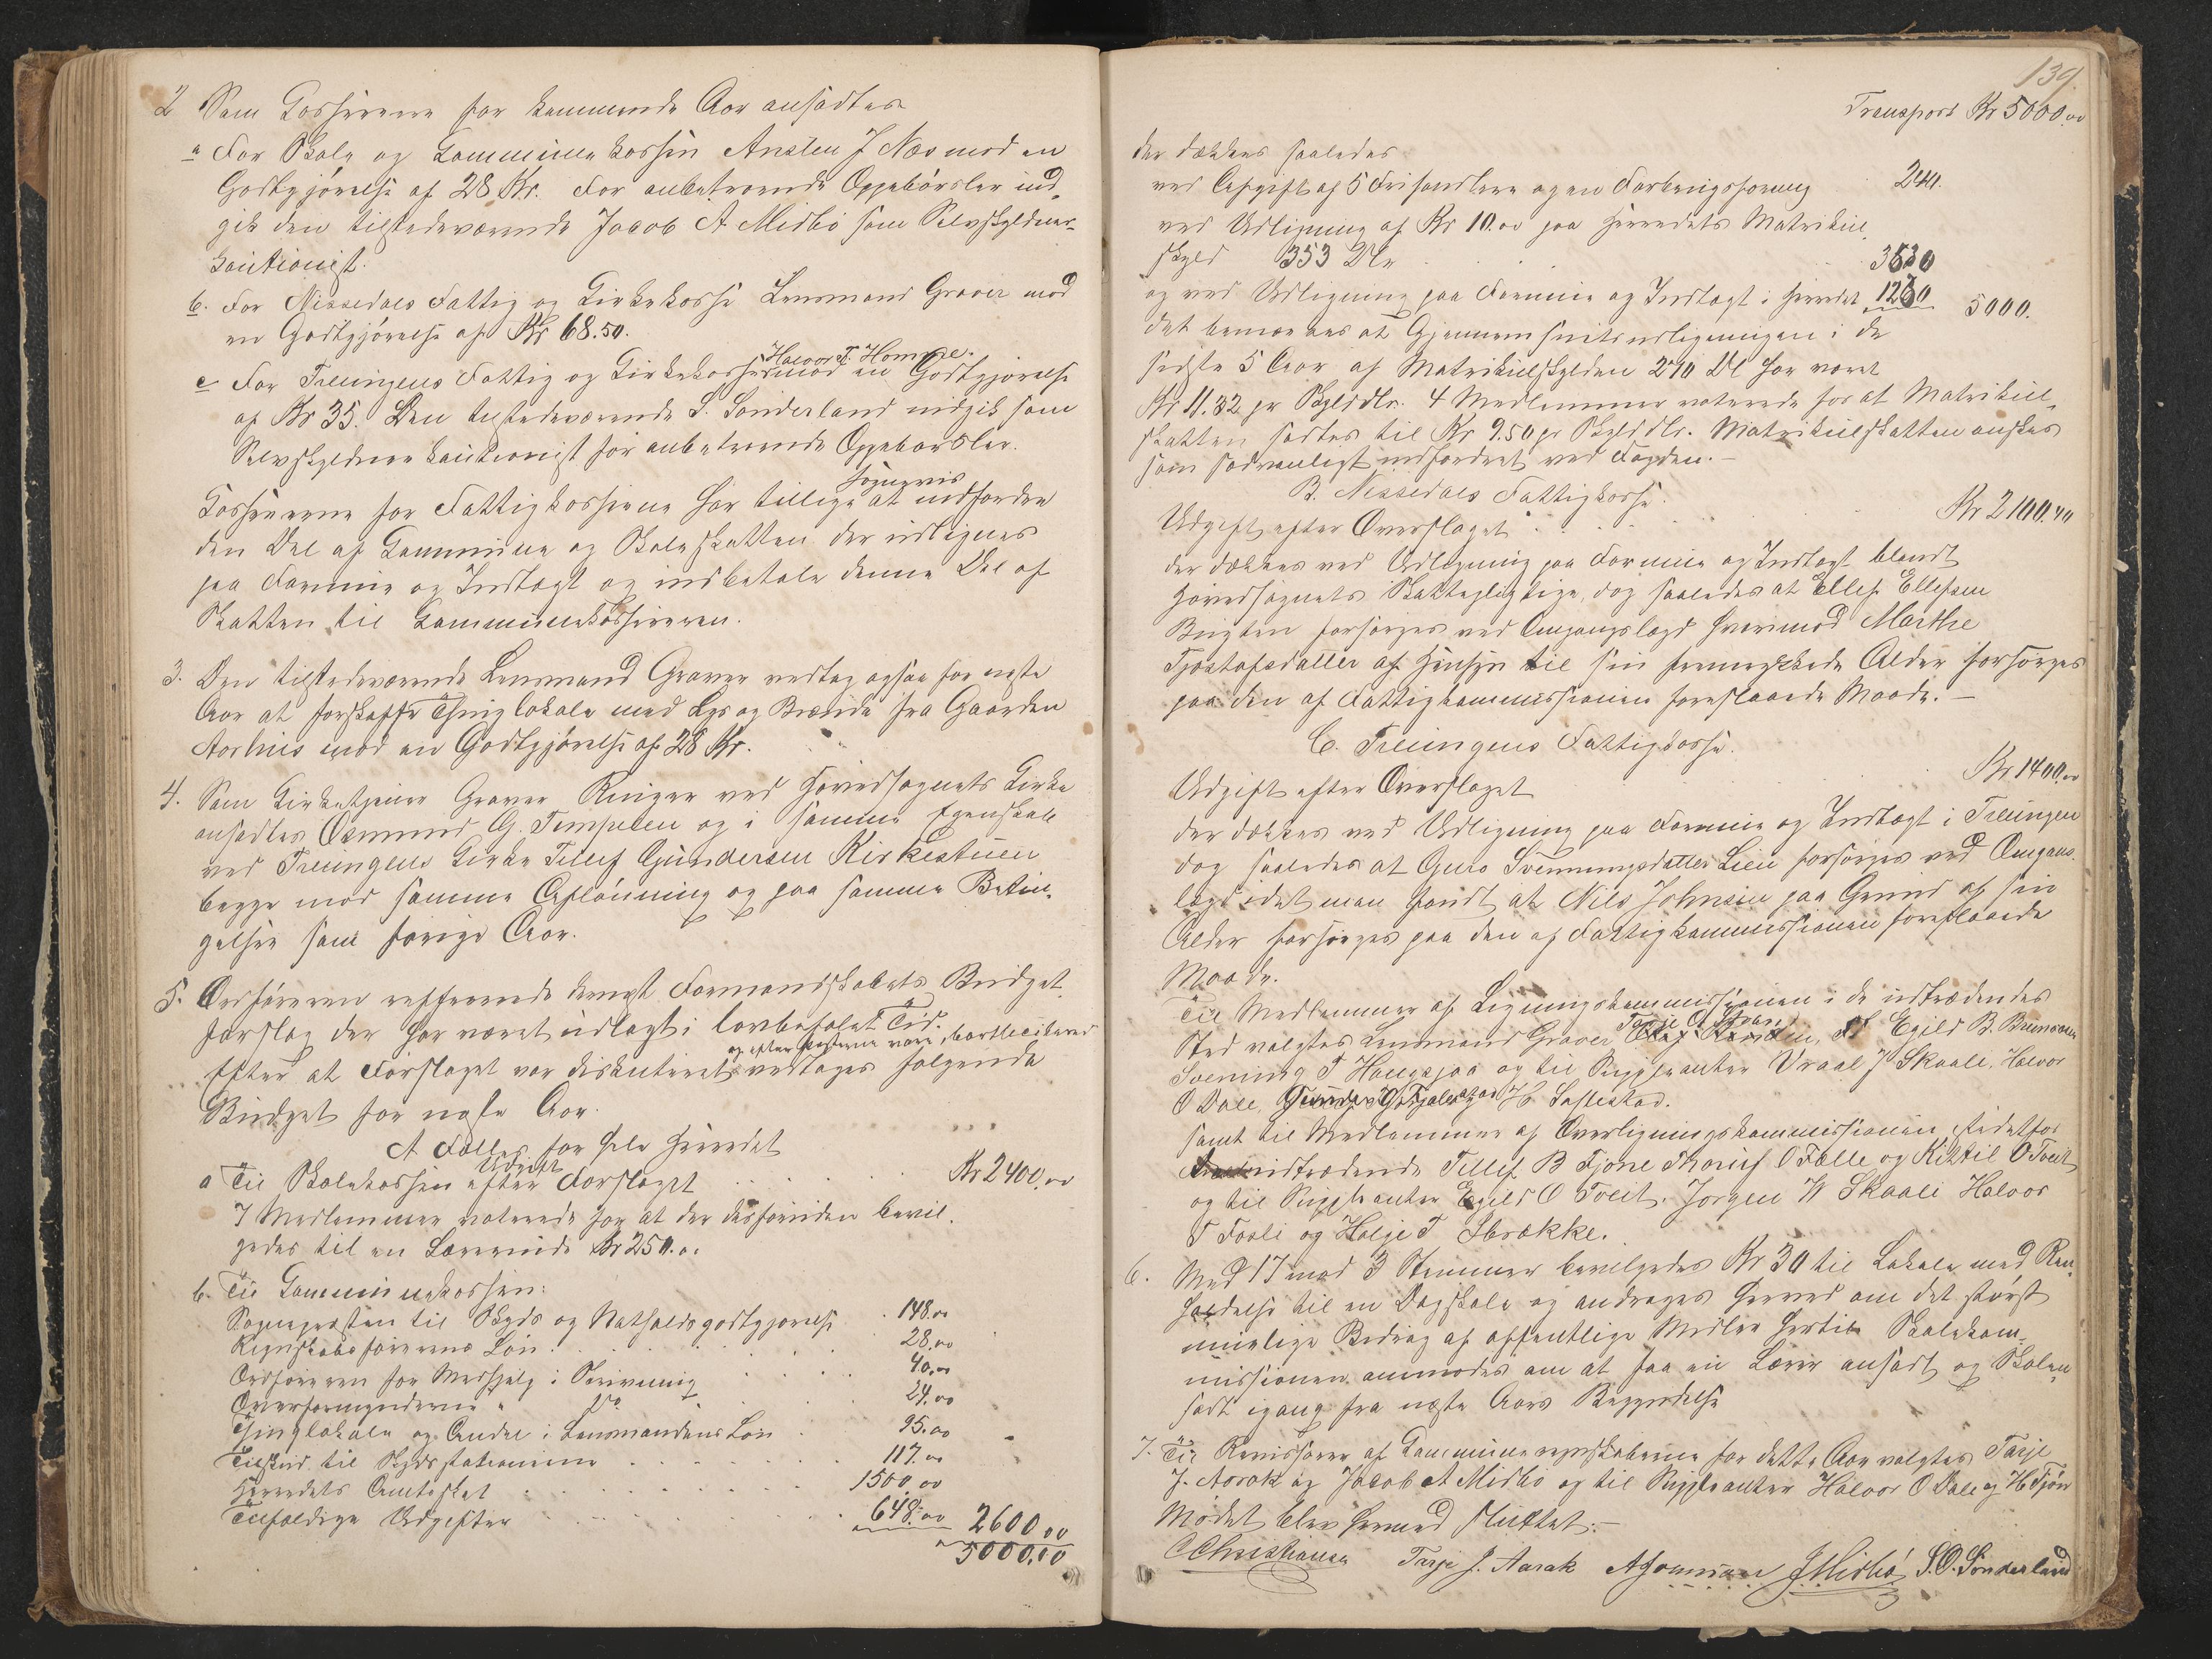 2 Som Cassererer for kommende Aar ansattes
a For Skole og Communekassen Anslen J Næs mod en
Godtgjørelse af 28 Kr. For anbetroende Oppebørsler ind-
gik den tilstedeværende Jacob A Midbø som Selvskyldner-
kautionist.
b. For Nissedals Fattig og Kirkekasse Lensmand Graver mod
en Godtgjørelse af Kr 68.50.
Halvor T. Homme
c For Treungens Fattig og Kirkekasse mod en Godtgjørelse
af Kr 35. Den tilstedeværende S. Sønderland indgik som
Selvskyldner kautionist for anbetroende Oppebørsler.
sognevis
Cassererne for Fattigkasserne har tillige at indfordre
den Del af Commune og Skoleskatten der udlignes
paa Formue og Indtægt og indbetale denne Del af
Skatten til Communekassereren.
3. Den tilstedeværende Lensmand Graver vedtog ogsaa for neste
Aar at forskaffe Thinglokale med Lys og Brænde paa Gaarden
Aarhus mod en Godtgjørelse af 28 Kr.
4. Som Kirketjener Graver Ringer ved Hovedsognets Kirke
ansattes Osmund G. Timpelen og i samme Egenskab
ved Treungens Kirke Tellef Gundersen Kirkestuen
begge mod samme Aflønning og paa samme Betin-
gelser som forrige Aar.
5. Ordføreren refererede dernæst Formandskabets Budget-
forslag der har været udlagt i lovbefalet Tid.
og efter Posterne vare bortleciterede
Efter at Forslaget var diskuteret vedtoges følgende
Budget for neste Aar.
A Fælles for hele Herredet
Udgift
a Til Skolekassen efter Forslaget Kr 2400.00
7 Medlemmer voterede for at der desforuden bevil-
gedes til en Lærerinde Kr 250.00
b. Til Communekassen:
Sognepresten til Skyds og Natholdsgodtgjørelse 148.00
Regnskabsførerens Løn 28.00
Ordføreren for Medhjælp i Skrivning 40.00
Overformynderne " Do 24.00
Thinglokale og Andel i Lensmandens Løn 95.00
Tilskud til Skydsstationerne 117.00
Herredets Amtsskat 1500.00
Tilfældige Udgifter 648.00 2600 00
5000.00
139.
Transport Kr 5000.00
der dækkes saaledes
ved Afgift af 5 Frihandlere og en Farberigforening 240.
ved Udligning af Kr 10.00 paa Herredets Matrikul-
skyld 353 Dlr 3530
og ved Udligning paa Formue og Indtægt i Herredet 1230 5000.
det bemærkes at Gjennemsnitsudligningen i de
sidste 5 Aar af Matrikulskylden 270 Dl har været
Kr 11.32 pr Skylddlr. 4 Medlemmer voterede for at Matrikul-
skatten sattes til Kr 9.50 pr Skylddlr. Matrikulskatten ønskes
som sædvanligt indfordret ved Fogden.-
B. Nissedals Fattigkasse.
Udgift efter Overslaget Kr 2100.00
der dækkes ved Udligning paa Formue og Indtægt blandt
Hovedsognets Skattepligtige, dog saaledes at Ellef Ellefsen
Bugten forsørges ved Omgangslægd hvorimod Marthe
Tjøstofsdatter af Hensyn til sin fremrykkede Alder forsørges
paa den af Fattigkommissionen foreslaaede Maade.-
C. Treungens Fattigkasse.
Udgift efter Overslaget Kr 1400.00
der dækkes ved Udligning paa Formue og Indtægt i Treungen
dog saaledes at Guro Svenningsdatter Lien forsørges ved Omgangs-
lægd idet man fandt at Nils Johnsen paa Grund af sin
Alder forsørges paa den af Fattigkommissionen foreslaaede
Maade.
Til Medlemmer af Ligningskommissionen i de udtrædendes
Sted valgtes Lensmand Graver Egild B. Brunsaa
Svening T Haugsjaa og til Suppleanter Vraal J Skaale, Halvor
O Dale, H. Saftestad.
samt til Medlemmer af Overligningskommissionen istedetfor
udtrædende Tellef B Fjone O Fælle og Kittil O Tveit
og til Suppleanter Egild O Tveit. Jørgen W Skaali Halvor
T Fosli og Halje T Sbrække.
6. Med 17 mod 3 Stemmer bevilgedes Kr 30 til Lokale med Ren-
holdelse til en Dagskole og andrages herved om det størst
mulige Bidrag af offentlige Midler hertil Skolekom-
missionen anmodes om at faa en Lærer ansat og Skolen
sat igang fra neste Aars Begyndelse
7. Til Revisorer af Communeregnskaberne for dette Aar valgtes Tarje
J. Aarak og Jacob A Midbø og til Suppleanter Halvor O Dale og H Tjøn
Mødet blev hermed sluttet.-
CChristiansen Tarje J. Aarak JMidbø S.O. Sønderland